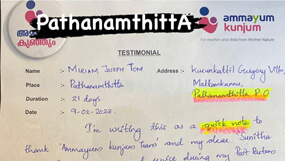 PathanamthittA
ammayum
kunjum
For mother and child from Mother Nature
കുഞ്ഞും
TESTIMONIAL
Name :- MIRIAM JOSEPH TOM Address :- Gregory Villa,
Place :- Pathanamthitta
Pathanamthitta P.O
Duration :- 21 days
Date :- 9-02-2022
I'm writing this as a quick note to
thank 'Ammayum kunjum team and my dear Sunitha
during my Post Partum